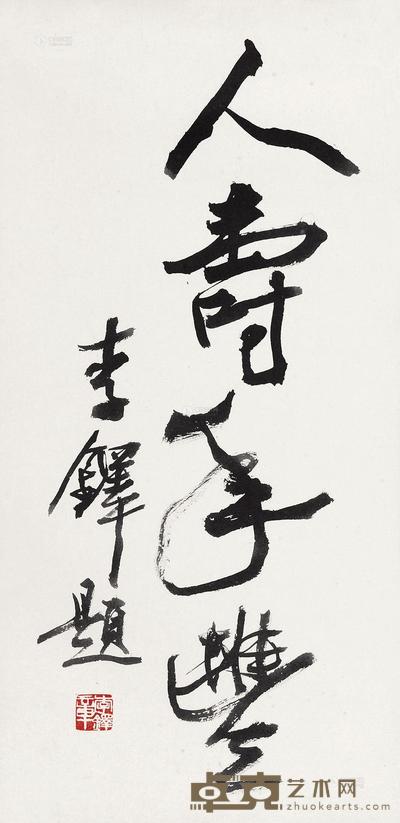 人壽年豐
李鐸題
卓克艺术网
www.zhuokearts.com